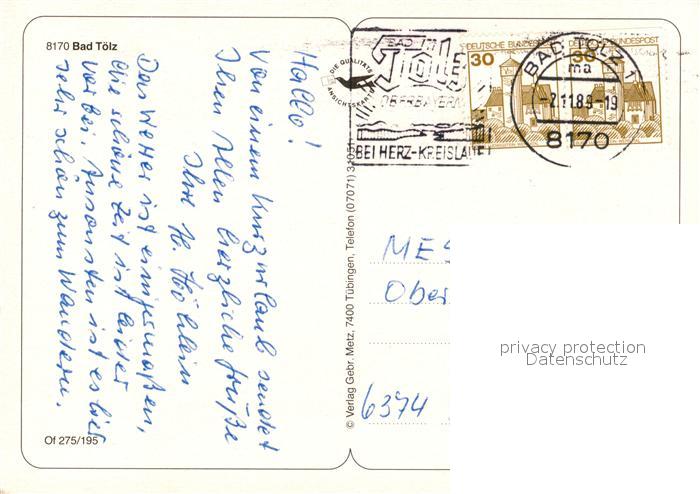 8170 Bad Tölz
Hallo!
Von einem Kurzurlaub sendet
Ihnen Allen herzliche Grüße
Ihre H.
Das Wetter ist einigermaßen,
die schöne Zeit ist leider
vorbei. Ansonsten ist es hier
sehr schön zum Wandern.
Of 275/195
© Verlag Gebr. Metz, 7400 Tübingen, Telefon (07071)
DIE QUALITÄTS
ANSICHTSKARTE
BAD
TÖLZ
OBERBAYERN
BEI HERZ-KREISLAUF
DEUTSCHE BUNDESPOST
30
30
BAD TÖLZ 1
ma
-2.11.88-19
8170
ME
Ober
6374
privacy protection
Datenschutz